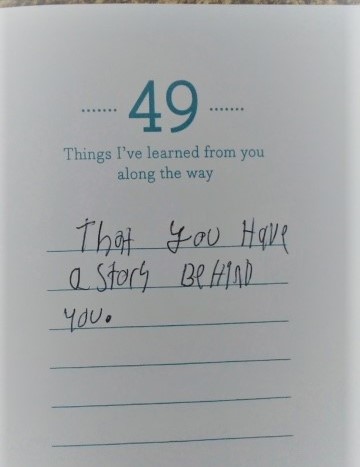 49
Things I've learned from you
along the way
That you Have
a story BeHIND
you.